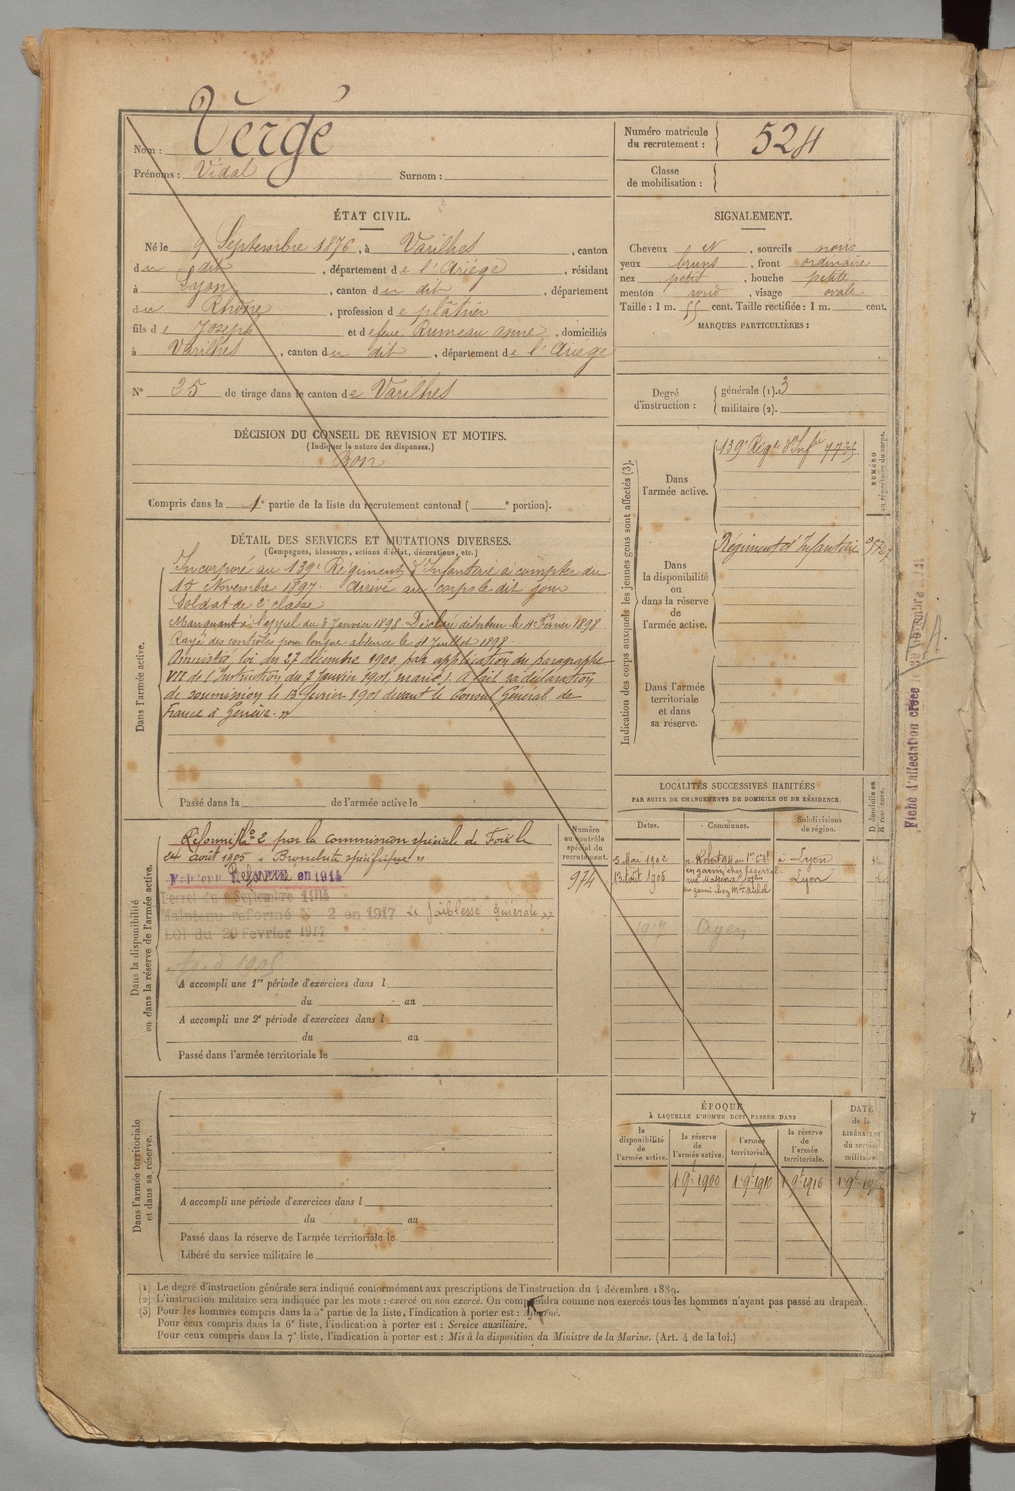 Nom : Vergé
Prénoms : Vidal Surnom :
Numéro matricule du recrutement : 524
Classe de mobilisation :
ÉTAT CIVIL.
Né le 9 Septembre 1876, à Varilhes, canton
du dit, département de l'Ariège, résidant
à Lyon, canton du dit, département
du Rhône, profession de plâtrier
fils de Joseph et de feue Rumeau Anne, domiciliés
à Varilhes, canton du dit, département de l'Ariège
N° 25 de tirage dans le canton de Varilhes
DÉCISION DU CONSEIL DE REVISION ET MOTIFS.
(Indiquer la nature des dispenses.)
Bon
Compris dans la 1e partie de la liste du recrutement cantonal ( e portion).
SIGNALEMENT.
Cheveux et, sourcils noirs
yeux bruns, front ordinaire
nez petit, bouche petite
menton rond, visage ovale
Taille : 1 m. 55 cent. Taille rectifiée : 1 m. cent.
MARQUES PARTICULIÈRES :
Degré d'instruction :
générale (1). 3
militaire (2).
DÉTAIL DES SERVICES ET MUTATIONS DIVERSES.
(Campagnes, blessures, actions d'éclat, décorations, etc.)
Dans l'armée active.
Incorporé au 139e Régiment d'Infanterie à compter du
14 Novembre 1897. Arrivé au corps le dit jour
Soldat de 2e classe
Manquant à l'appel du 5 Janvier 1898. Déclaré déserteur le 4 Février 1898
Rayé des contrôles pour longue absence le 4 Juillet 1898.
Amnistié loi du 27 décembre 1900, par application du paragraphe
VII de l'Instruction du 2 janvier 1901, marié). A fait sa déclaration
de soumission le 13 février 1901 devant le Consul Général de
France à Genève. »
Passé dans la de l'armée active le
Indication des corps auxquels les jeunes gens sont affectés (3).
NUMÉRO au répertoire du corps.
Dans l'armée active.
139e Régt d'Infie 7735
Dans la disponibilité ou dans la réserve de l'armée active.
Régiment d'Infanterie
Dans l'armée territoriale et dans sa réserve.
Fiche d'affectation créée le 30 Novembre
LOCALITÉS SUCCESSIVES HABITÉES
PAR SUITE DE CHANGEMENTS DE DOMICILE OU DE RÉSIDENCE.
Dates. Communes. Subdivisions de région. D domicile ou R résidence.
5 Mai 1902 à Lyon
13 août 1905 Lyon
1917 Agen
Dans la disponibilité ou dans la réserve de l'armée active.
Numéro au contrôle spécial du recrutement.
974
Réformé N° 2 par la commission spéciale de Foix le
24 août 1905 « Bronchite spécifique »
Maintenu Réformé en 1914
Décret du Septembre 1914
Maintenu réformé N° 2 en 1917 « faiblesse générale »
LOI du 20 Fevrier 1917
A accompli une 1re période d'exercices dans l
du au
A accompli une 2e période d'exercices dans l
du au
Passé dans l'armée territoriale le
Dans l'armée territoriale et dans sa réserve.
A accompli une période d'exercices dans l
du au
Passé dans la réserve de l'armée territoriale le
Libéré du service militaire le
ÉPOQUE
À LAQUELLE L'HOMME DOIT PASSER DANS
la disponibilité de l'armée active.
la réserve de l'armée active.
l'armée territoriale.
la réserve de l'armée territoriale.
DATE de la LIBÉRATION du service militaire.
1 9e 1900 1 9e 1910 1 9e 1916 1 9e
(1) Le degré d'instruction générale sera indiqué conformément aux prescriptions de l'instruction du 4 décembre 1889.
(2) L'instruction militaire sera indiquée par les mots : exercé ou non exercé. On comprendra comme non exercés tous les hommes n'ayant pas passé au drapeau.
(3) Pour les hommes compris dans la 5e partie de la liste, l'indication à porter est : Ajourné.
Pour ceux compris dans la 6e liste, l'indication à porter est : Service auxiliaire.
Pour ceux compris dans la 7e liste, l'indication à porter est : Mis à la disposition du Ministre de la Marine. (Art. 4 de la loi.)